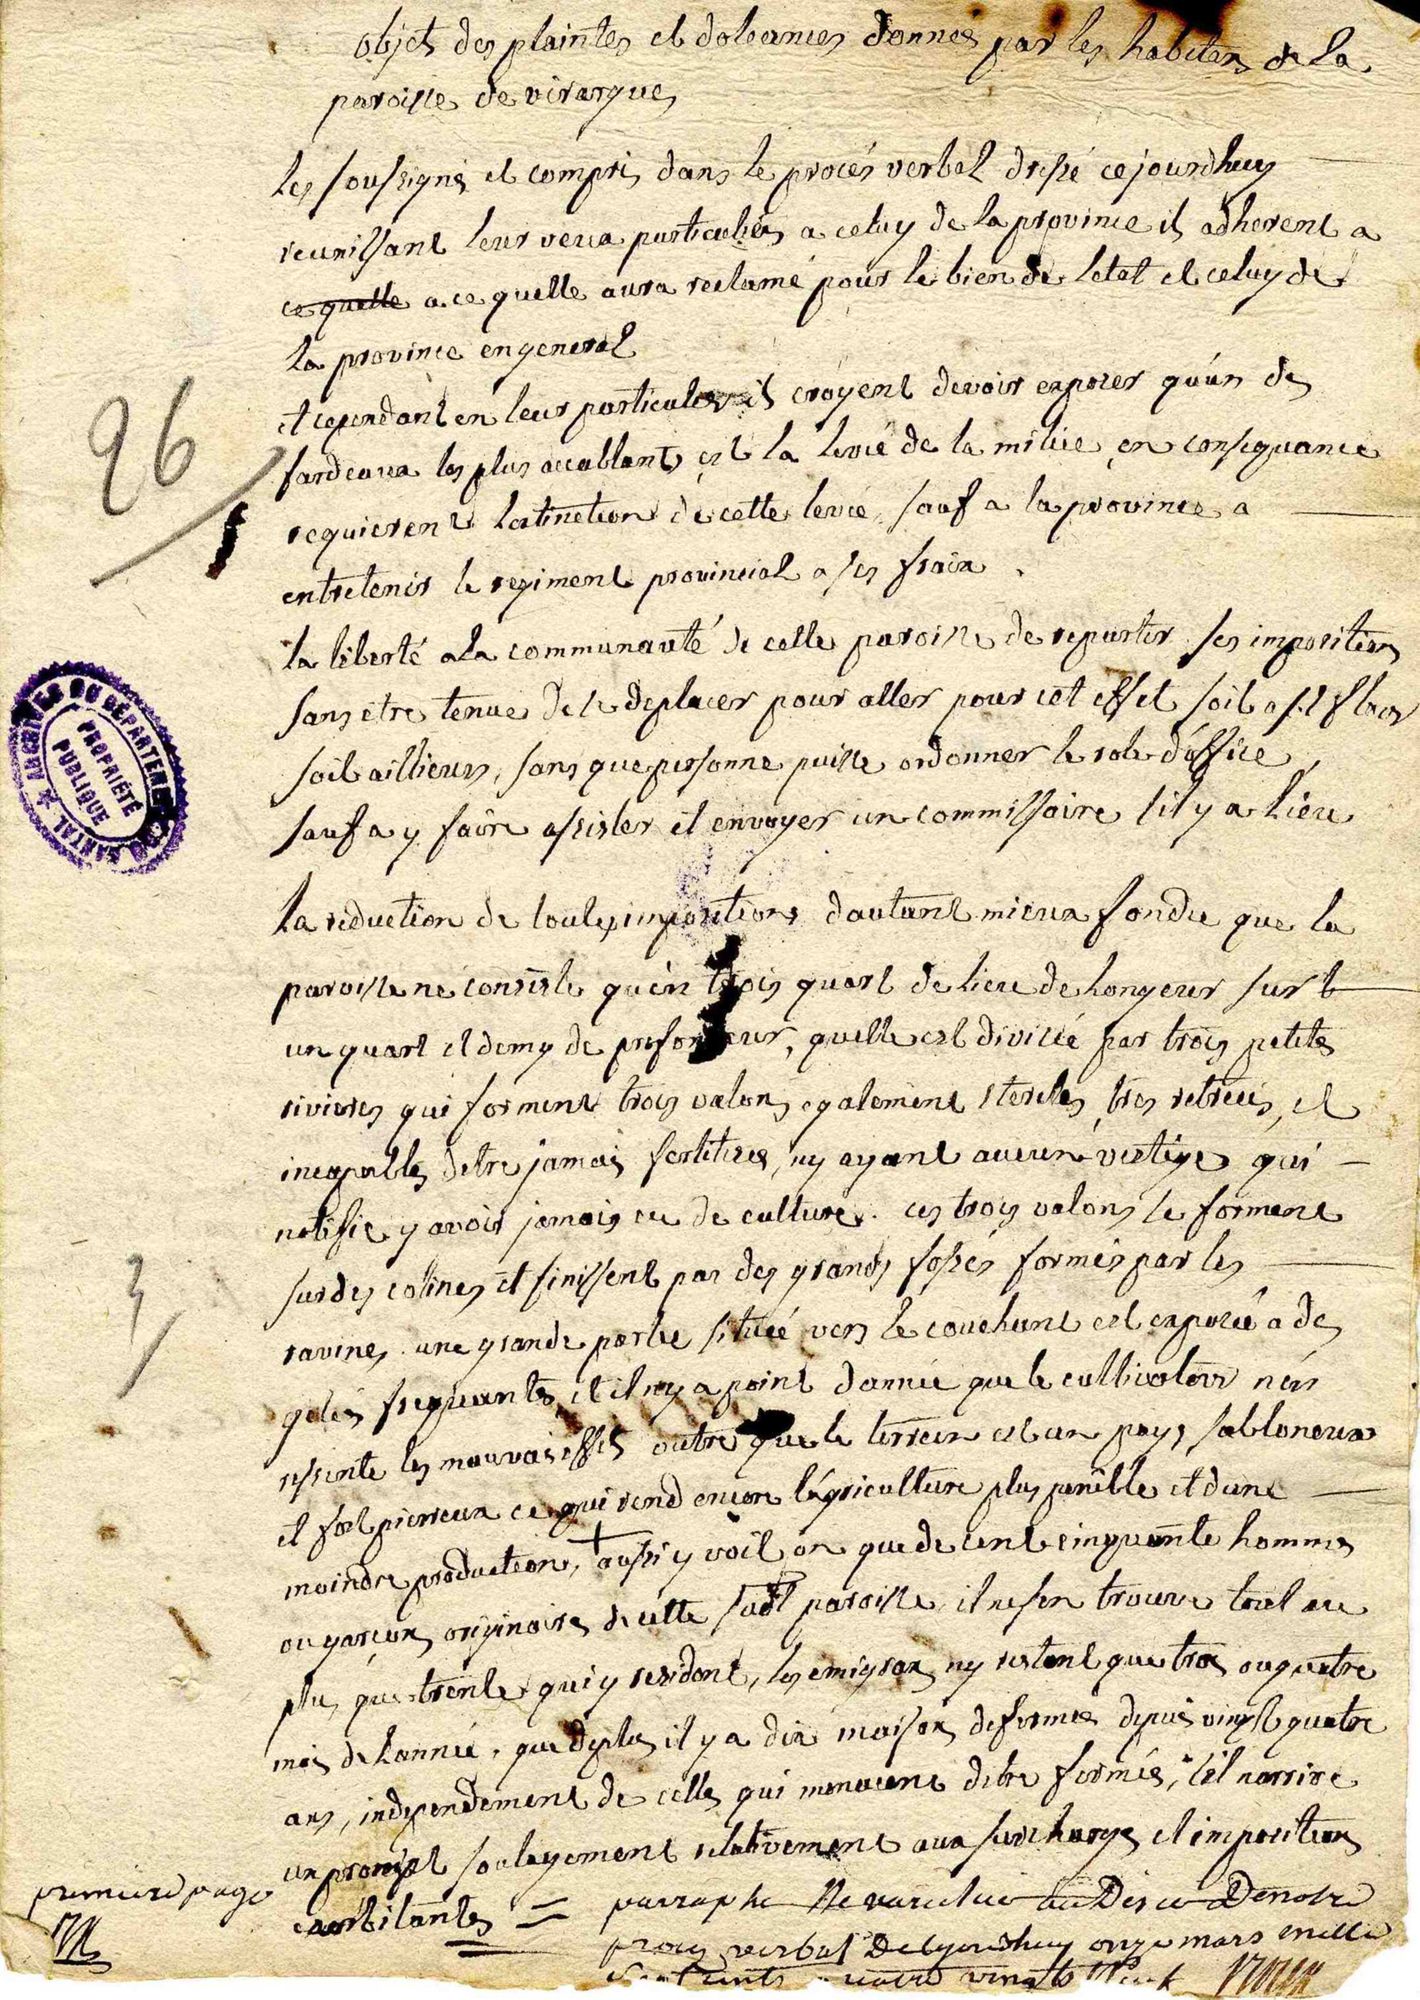 objet des plaintes et doleances donnés par les habitens de la
paroisse de virargues
les soussignés et compris dans le procés verbal dressé ce jourdhuy
reunissant leur veux particuliers a celuy de la province et adherent a
ce quelle a ce quelle aura reclamé pour le bien de letat et celuy de
la province en general
et cependant en leur particulier ils croyent devoir exposer qu'un des
fardeaux les plus accablants est la levée de la milice en consequance
requierent lextinction de cette levée, sauf a la province a
entretenir le regiment provincial a ses fraix.
la liberté a la communauté de celle paroisse de repartir ses impositions
sans etre tenue de se deplacer pour aller pour cet effet soit a st flour
soit aillieurs, sans que personne puisse ordonner le role d'office,
sauf a y faire assister et envoyer un commissaire s'il y a lieu
la reduction de toutes impositions d'autant mieux fondée que la
paroisse ne consiste qu'en trois quart de lieue de longeur sur
un quart et demy de profondeur, quelle est divisée par trois petites
rivieres qui forment trois valons egalement steriles, tres retrecis, et
incapables detre jamais fertilisés, ny ayant aucun vestige qui
notifie y avoir jamais eu de culture. ces trois valons se forment
sur des colines et finissent par des grands fossés formés par les
ravines. une grande partie située vers le couchant est exposée a des
gelés frequantes, et il ny a point d'année que le cultivateur n'en
ressente les mauvais effets outre que le terrein est un pays sabloneux
et fort pierreux ce qui rend encore lagriculture plus penible et dune
moindre production, aussi y voit on que de cent cinquante hommes
ou garcons originaires de cette susdt paroisse, il ne sen trouve tout au
plus que trente qui y resident, les emigrans ny restent que trois ou quatre
mois de l'année, que de plus il y a dix maisons defermés depuis vingt quatre
ans, independement de celles qui menacent detre fermés, s'il n'arrive
un prompt soulagement relativement aux surcharges et impositions
exorbitantes =
parraphé Ne varietur au Desir De notre
proces verbal De ce jourdhuy onze mars mille
sept cents quatre vingts Neuf
premiere page
26
3
ARCHIVES DU DÉPARTEMENT DU CANTAL
PROPRIÉTÉ
PUBLIQUE